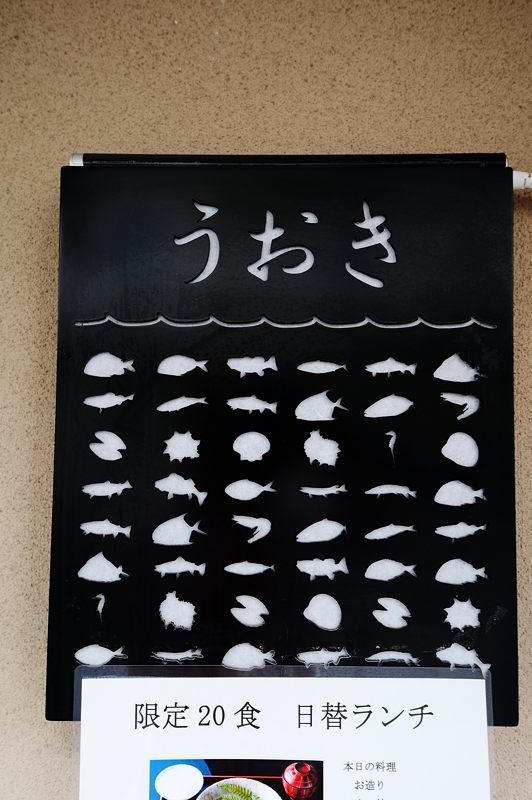 うおき
限定20食　日替ランチ
本日の料理
お造り